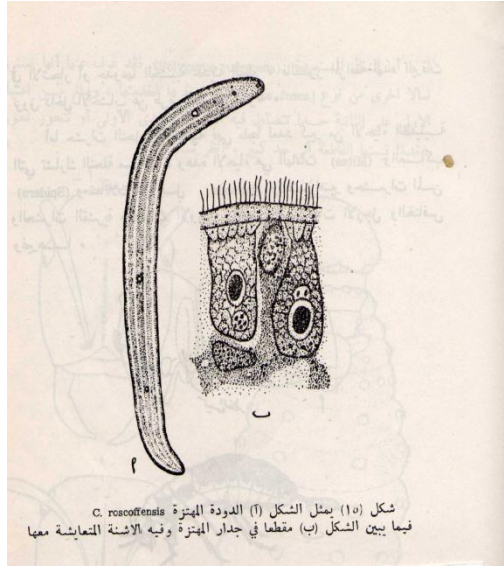 م
ب
شكل (١٥) يمثل الشكل (آ) الدودة المهتزة C. roscoffensis
فيما يبين الشكل (ب) مقطعا في جدار المهتزة وفيه الاشنة المتعايشة معها